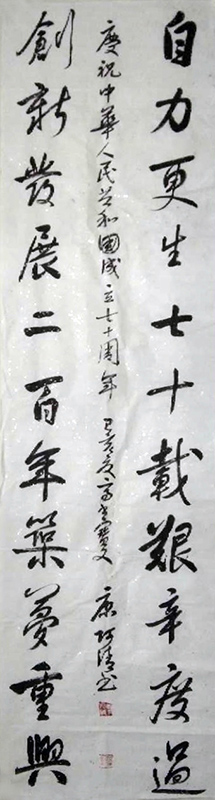 自力更生七十載艱辛度過
創新發展二百年築夢重興
慶祝中華人民共和國成立七十周年 己亥 康 書